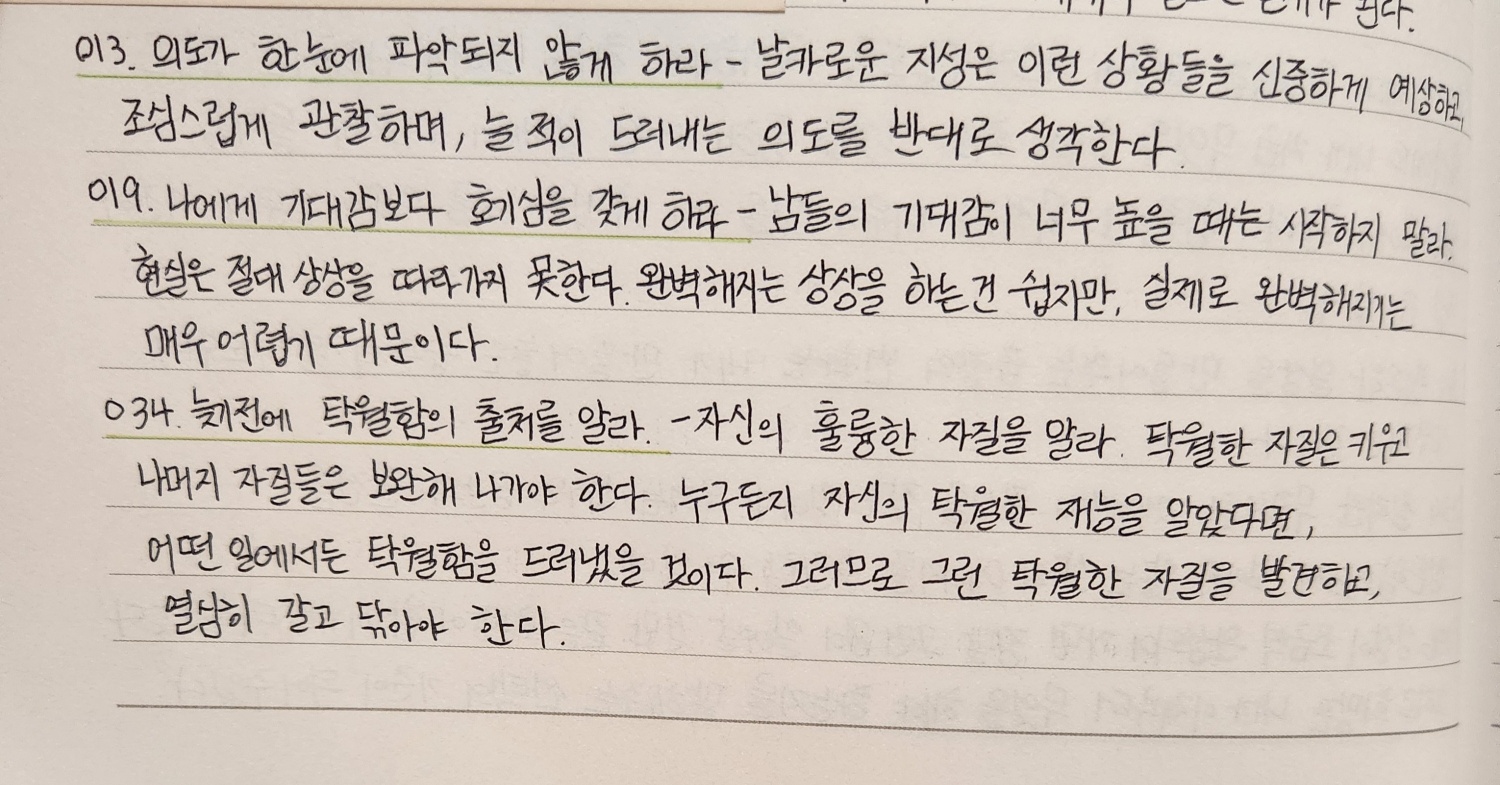 된다.
013. 의도가 한눈에 파악되지 않게 하라 - 날카로운 지성은 이런 상황들을 신중하게 예상하고,
조심스럽게 관찰하며, 늘 적이 드러내는 의도를 반대로 생각한다.
019. 나에게 기대감보다 호기심을 갖게 하라 - 남들의 기대감이 너무 높을 때는 시작하지 말라.
현실은 절대 상상을 따라가지 못한다. 완벽해지는 상상을 하는건 쉽지만, 실제로 완벽해지기는
매우 어렵기 때문이다.
034. 늦기전에 탁월함의 출처를 알라. - 자신의 훌륭한 자질을 알라. 탁월한 자질은 키우고
나머지 자질들은 보완해 나가야 한다. 누구든지 자신의 탁월한 재능을 알았다면,
어떤 일에서든 탁월함을 드러냈을 것이다. 그러므로 그런 탁월한 자질을 발견하고,
열심히 갈고 닦아야 한다.